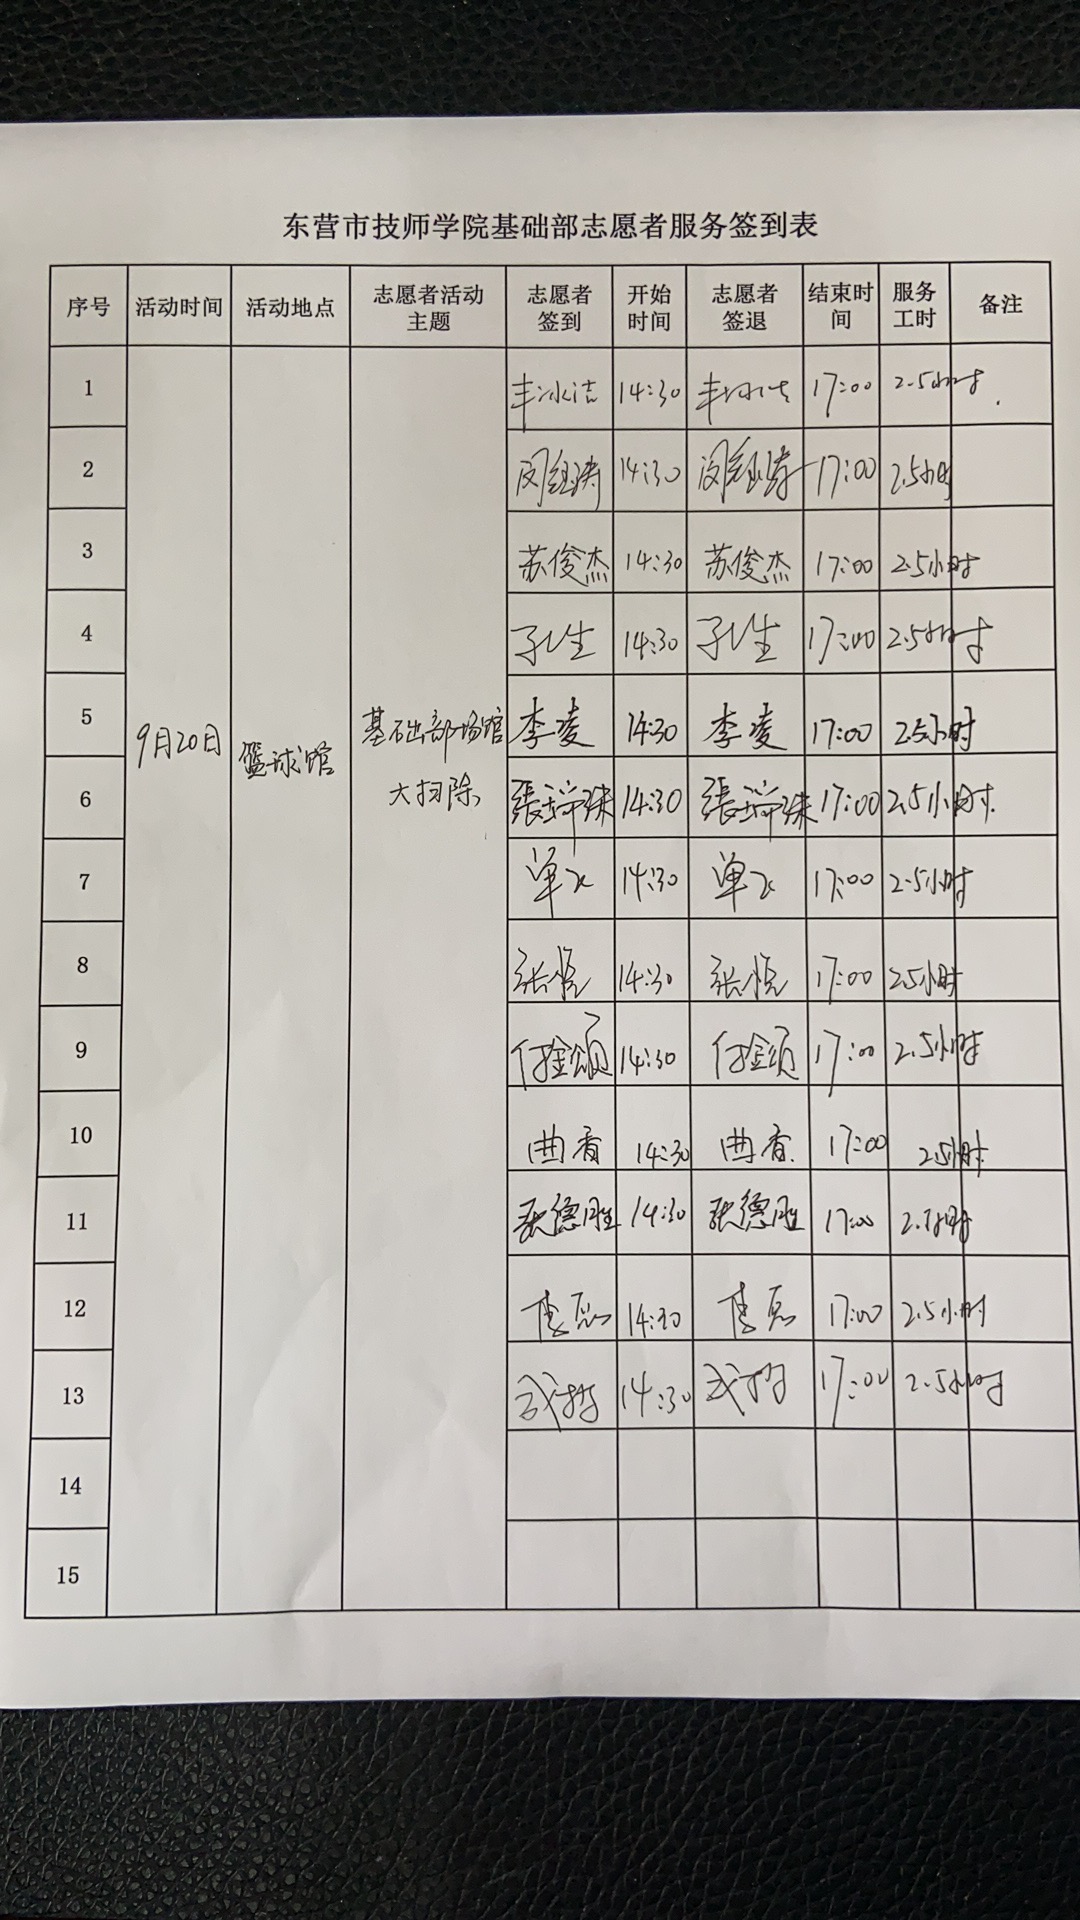 东营市技师学院基础部志愿者服务签到表
序号 活动时间 活动地点 志愿者活动主题 志愿者签到 开始时间 志愿者签退 结束时间 服务工时 备注
9月20日 篮球馆 基础部场馆大扫除
1 丰冰洁 14:30 丰冰洁 17:00 2.5小时
2 14:30 17:00 2.5小时
3 苏俊杰 14:30 苏俊杰 17:00 2.5小时
4 孔生 14:30 孔生 17:00 2.5小时
5 李凌 14:30 李凌 17:00 2.5小时
6 張瑞珠 14:30 張瑞珠 17:00 2.5小时
7 单飞 14:30 单飞 17:00 2.5小时
8 张悦 14:30 张悦 17:00 2.5小时
9 付金颂 14:30 付金颂 17:00 2.5小时
10 曲香 14:30 曲香 17:00 2.5小时
11 张德胜 14:30 张德胜 17:00 2.5小时
12 14:30 17:00 2.5小时
13 14:30 17:00 2.5小时
14
15